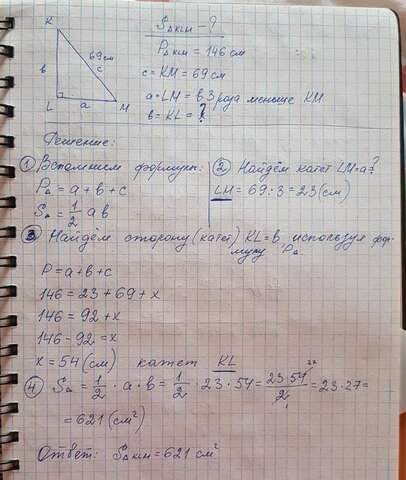 K
S△KLM - ?
P△KLM = 146 см
69 см
c
c = KM = 69 см
в
a = LM = в 3 раза меньше KM
L a M
в = KL = ?
Решение:
① Вспомним формулы:
P△ = a + в + c
S△ = 1/2 aв
② Найдём катет LM = a?
LM = 69 : 3 = 23 (см)
③ Найдём сторону (катет) KL = в, используя фор-
мулу P△
P = a + в + c
146 = 23 + 69 + x
146 = 92 + x
146 - 92 = x
x = 54 (см) катет KL
④ S△ = 1/2 · a · в = 1/2 · 23 · 54 = 23·54/2 = 23·27 =
27
1
= 621 (см²)
Ответ: S△KLM = 621 см²